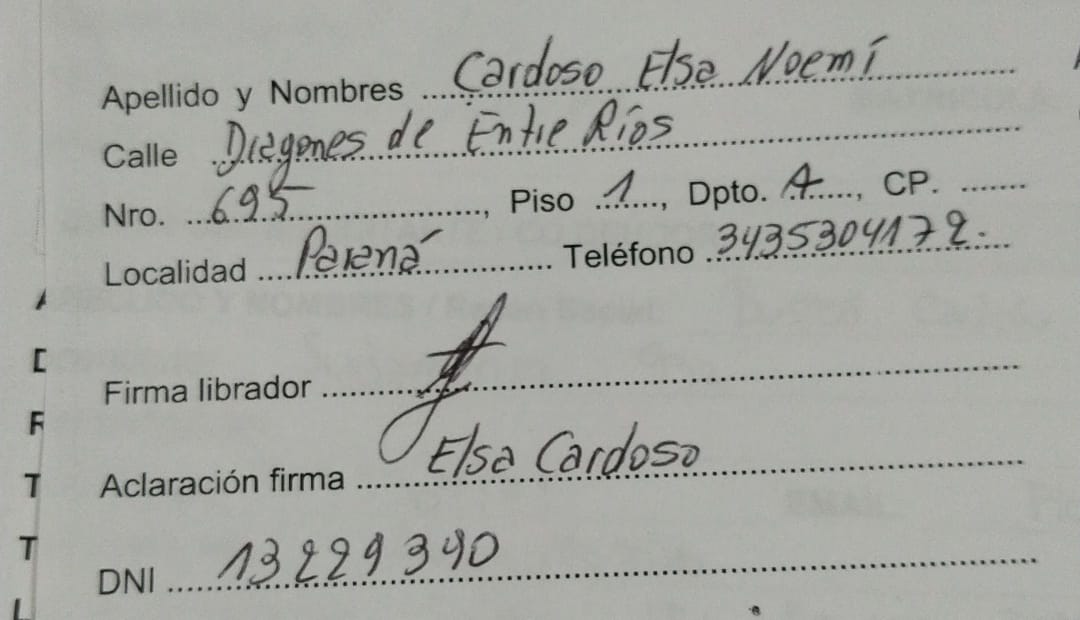 Apellido y Nombres Cardoso Elsa Noemí
Calle Dragones de Entre Ríos
Nro. 695, Piso 1, Dpto. A, CP.
Localidad Paraná Teléfono 3435304172.
Firma librador
Aclaración firma Elsa Cardoso
DNI 13229340